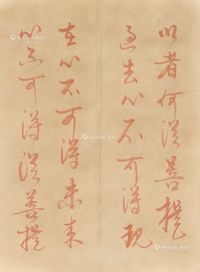 以者何須菩提
過去心不可得現
在心不可得未來
心不可得須菩提